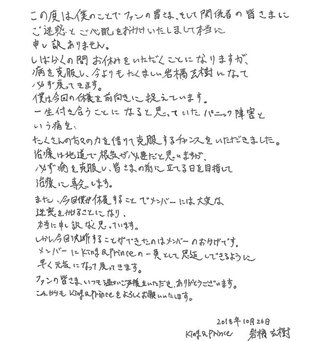 この度は僕のことでファンの皆さま、そして関係者の皆さまに
ご迷惑とご心配をおかけいたしまして本当に
申し訳ありません。
しばらくの間お休みをいただくことになりますが、
病を克服し、今よりもたくましい岩橋玄樹になって
必ず戻ってきます。
僕は今回の休養を前向きに捉えています。
一生付き合うことになると思っていたパニック障害と
いう病を、
たくさんの方々の力を借りて克服するチャンスをいただきました。
治療は地道で根気が必要だと思いますが、
必ず病を克服し、皆さまの前に立てる日を目指して
治療に専念します。
また、今回僕が休養することでメンバーには大変な
迷惑をかけることになり、
本当に申し訳なく思っています。
しかし今回決断することができたのはメンバーのおかげです。
メンバーにKing & Princeの一員として恩返しできるように
早く元気になって戻ってきます。
ファンの皆さま、いつも温かいご声援をいただきありがとうございます。
これからもKing & Princeをよろしくお願いいたします。
2018年10月26日
King & Prince 岩橋玄樹